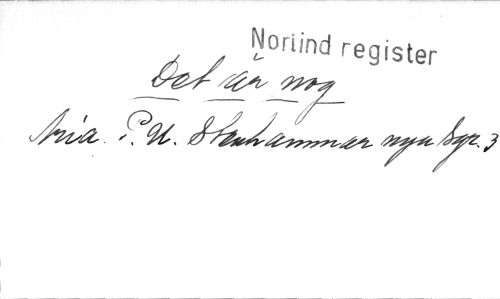 Norlind register
Det är nog
Aria. P. U. Stenhammar nya